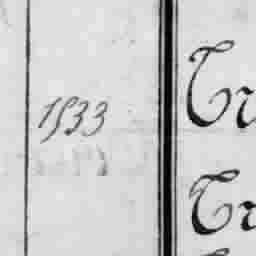 1533
Tr
Tr